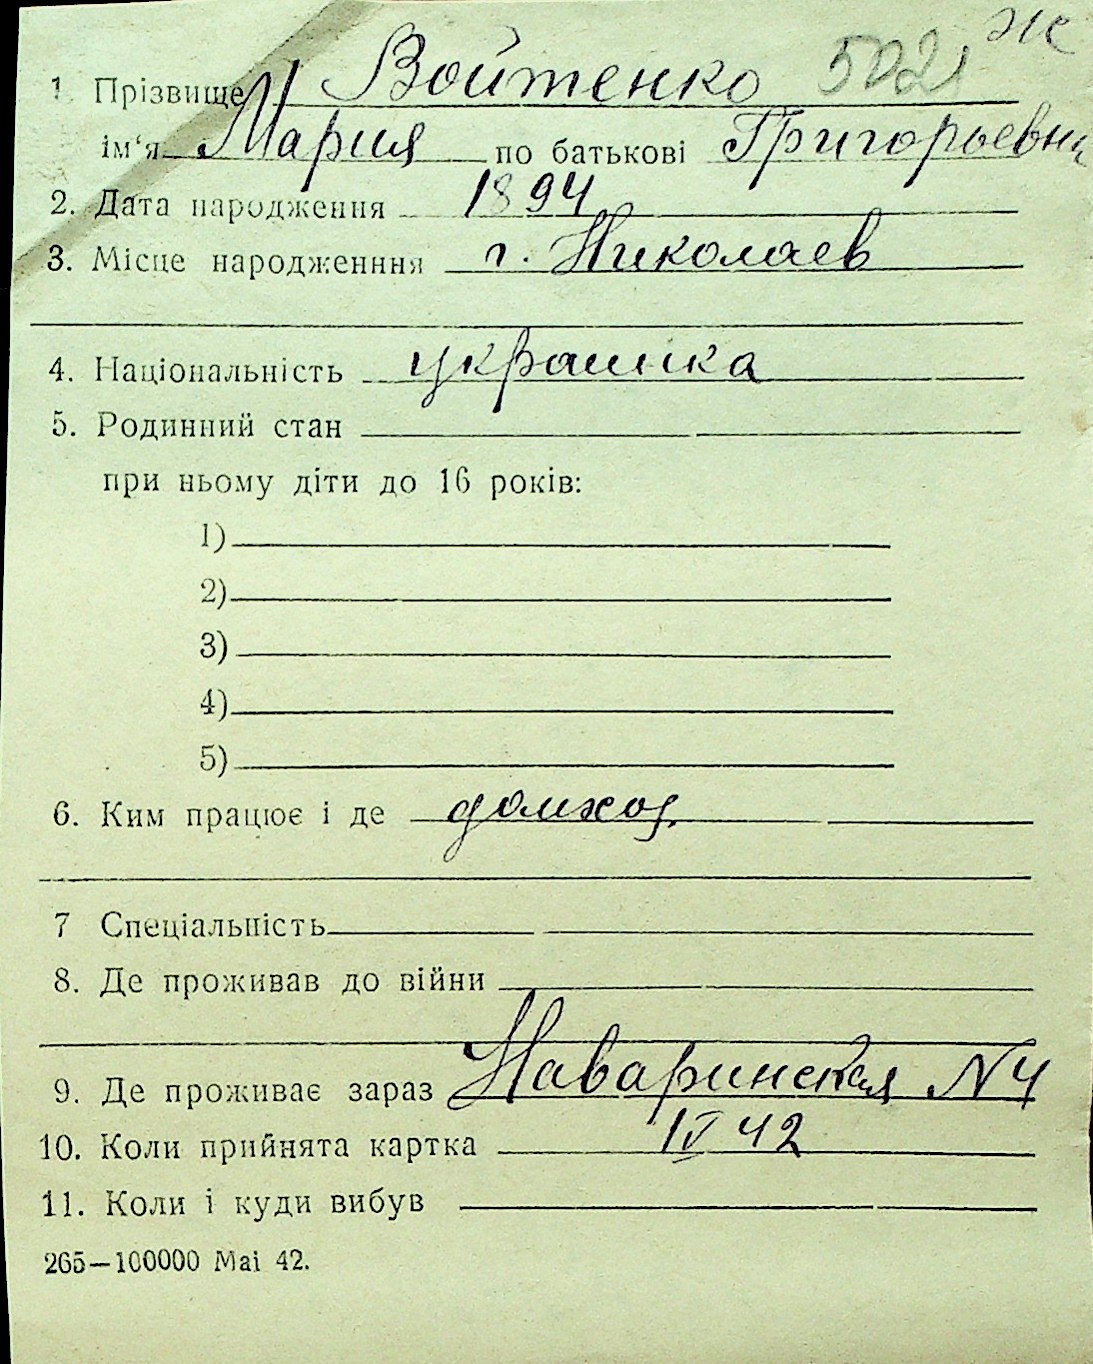 1. Прізвище Войтенко 5021 Ж
ім'я Мария по батькові Григорьевн
2. Дата народження 1894
3. Місце народженння г. Николаев
4. Національність украинка
5. Родинний стан
при ньому діти до 16 років:
1)
2)
3)
4)
5)
6. Ким працює і де домхоз.
7 Спеціальність
8. Де проживав до війни
9. Де проживає зараз Наваринская N 4
10. Коли прийнята картка IV 42
11. Коли і куди вибув
265—100000 Mai 42.